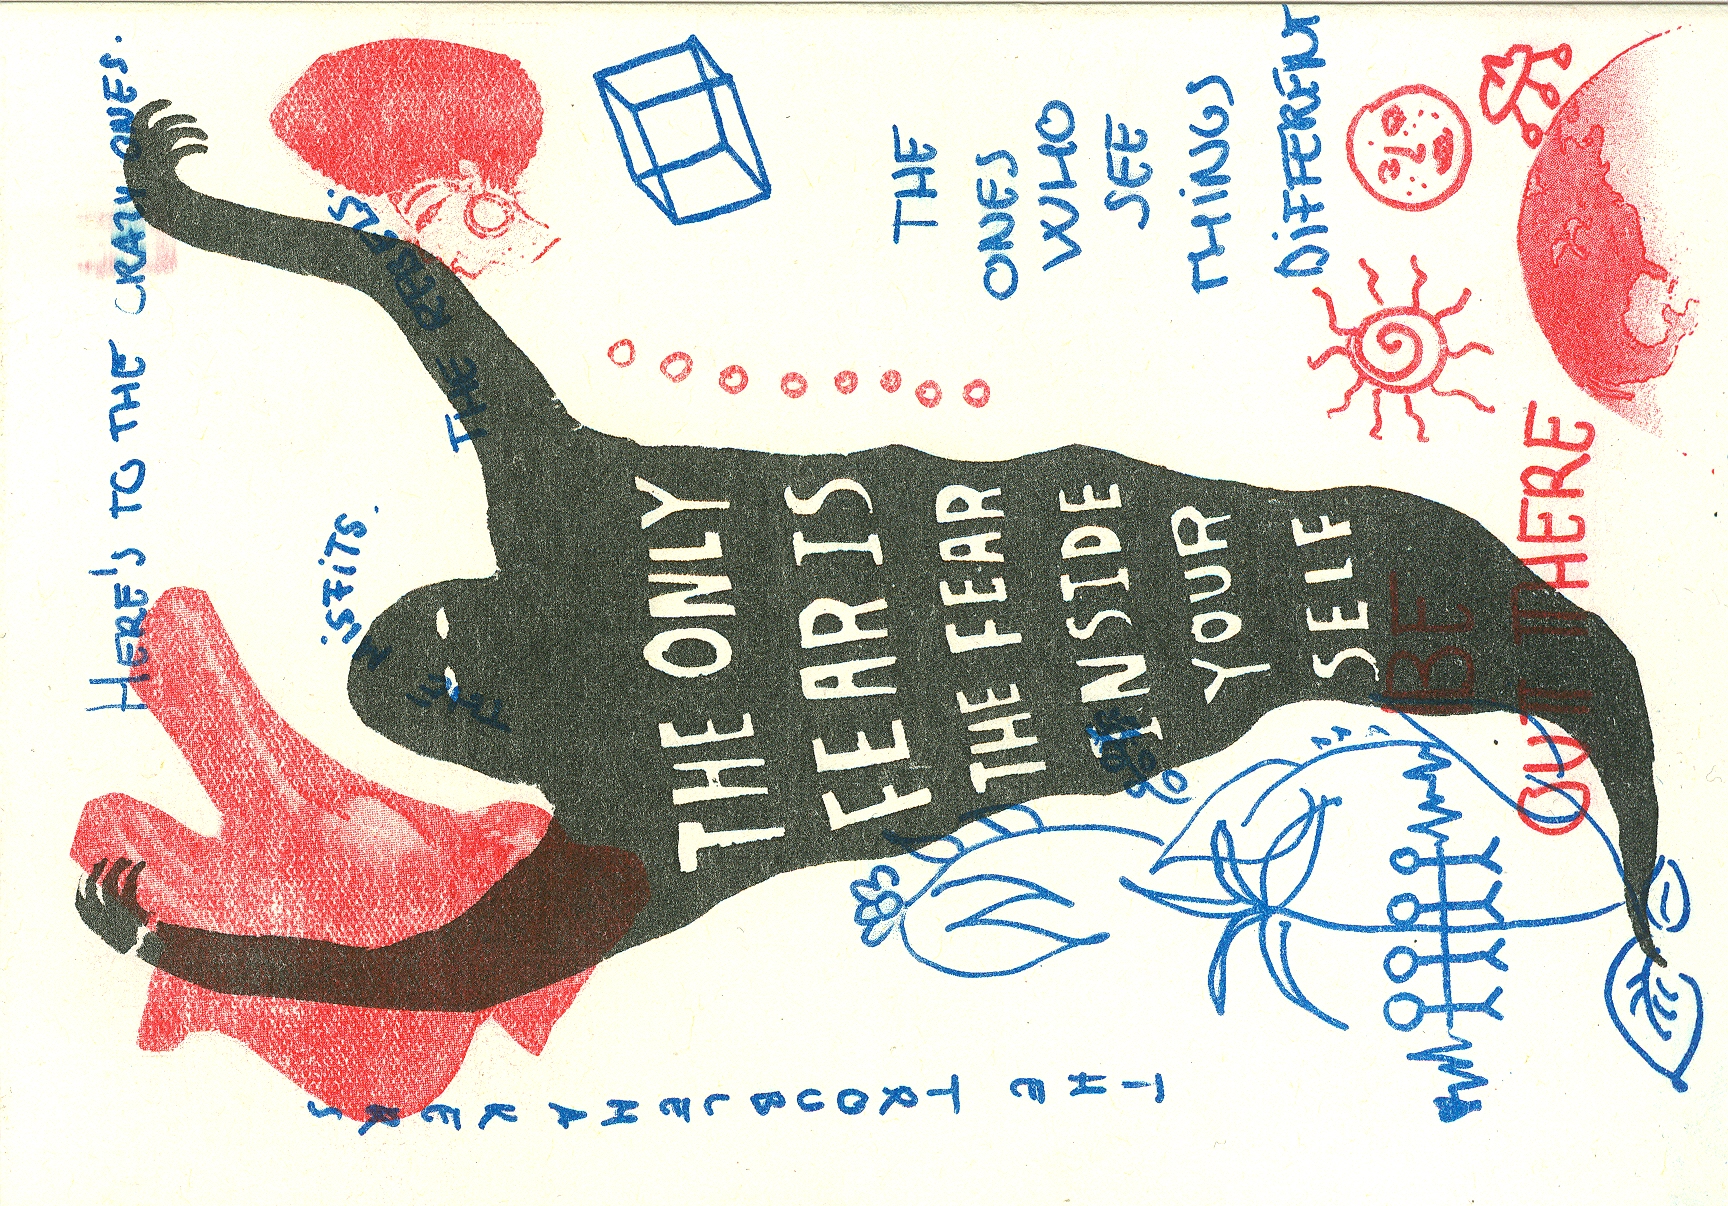 HERE'S TO THE CRAZY ONES.
THE MiSFiTS.
THE REBELS.
THE TROUBLEMAKERS
THE ONLY
FEAR IS
THE FEAR
INSIDE
YOUR
SELF
THE
ONES
WHO
SEE
THiNGS
DiFFERENT
BE
OUT THERE